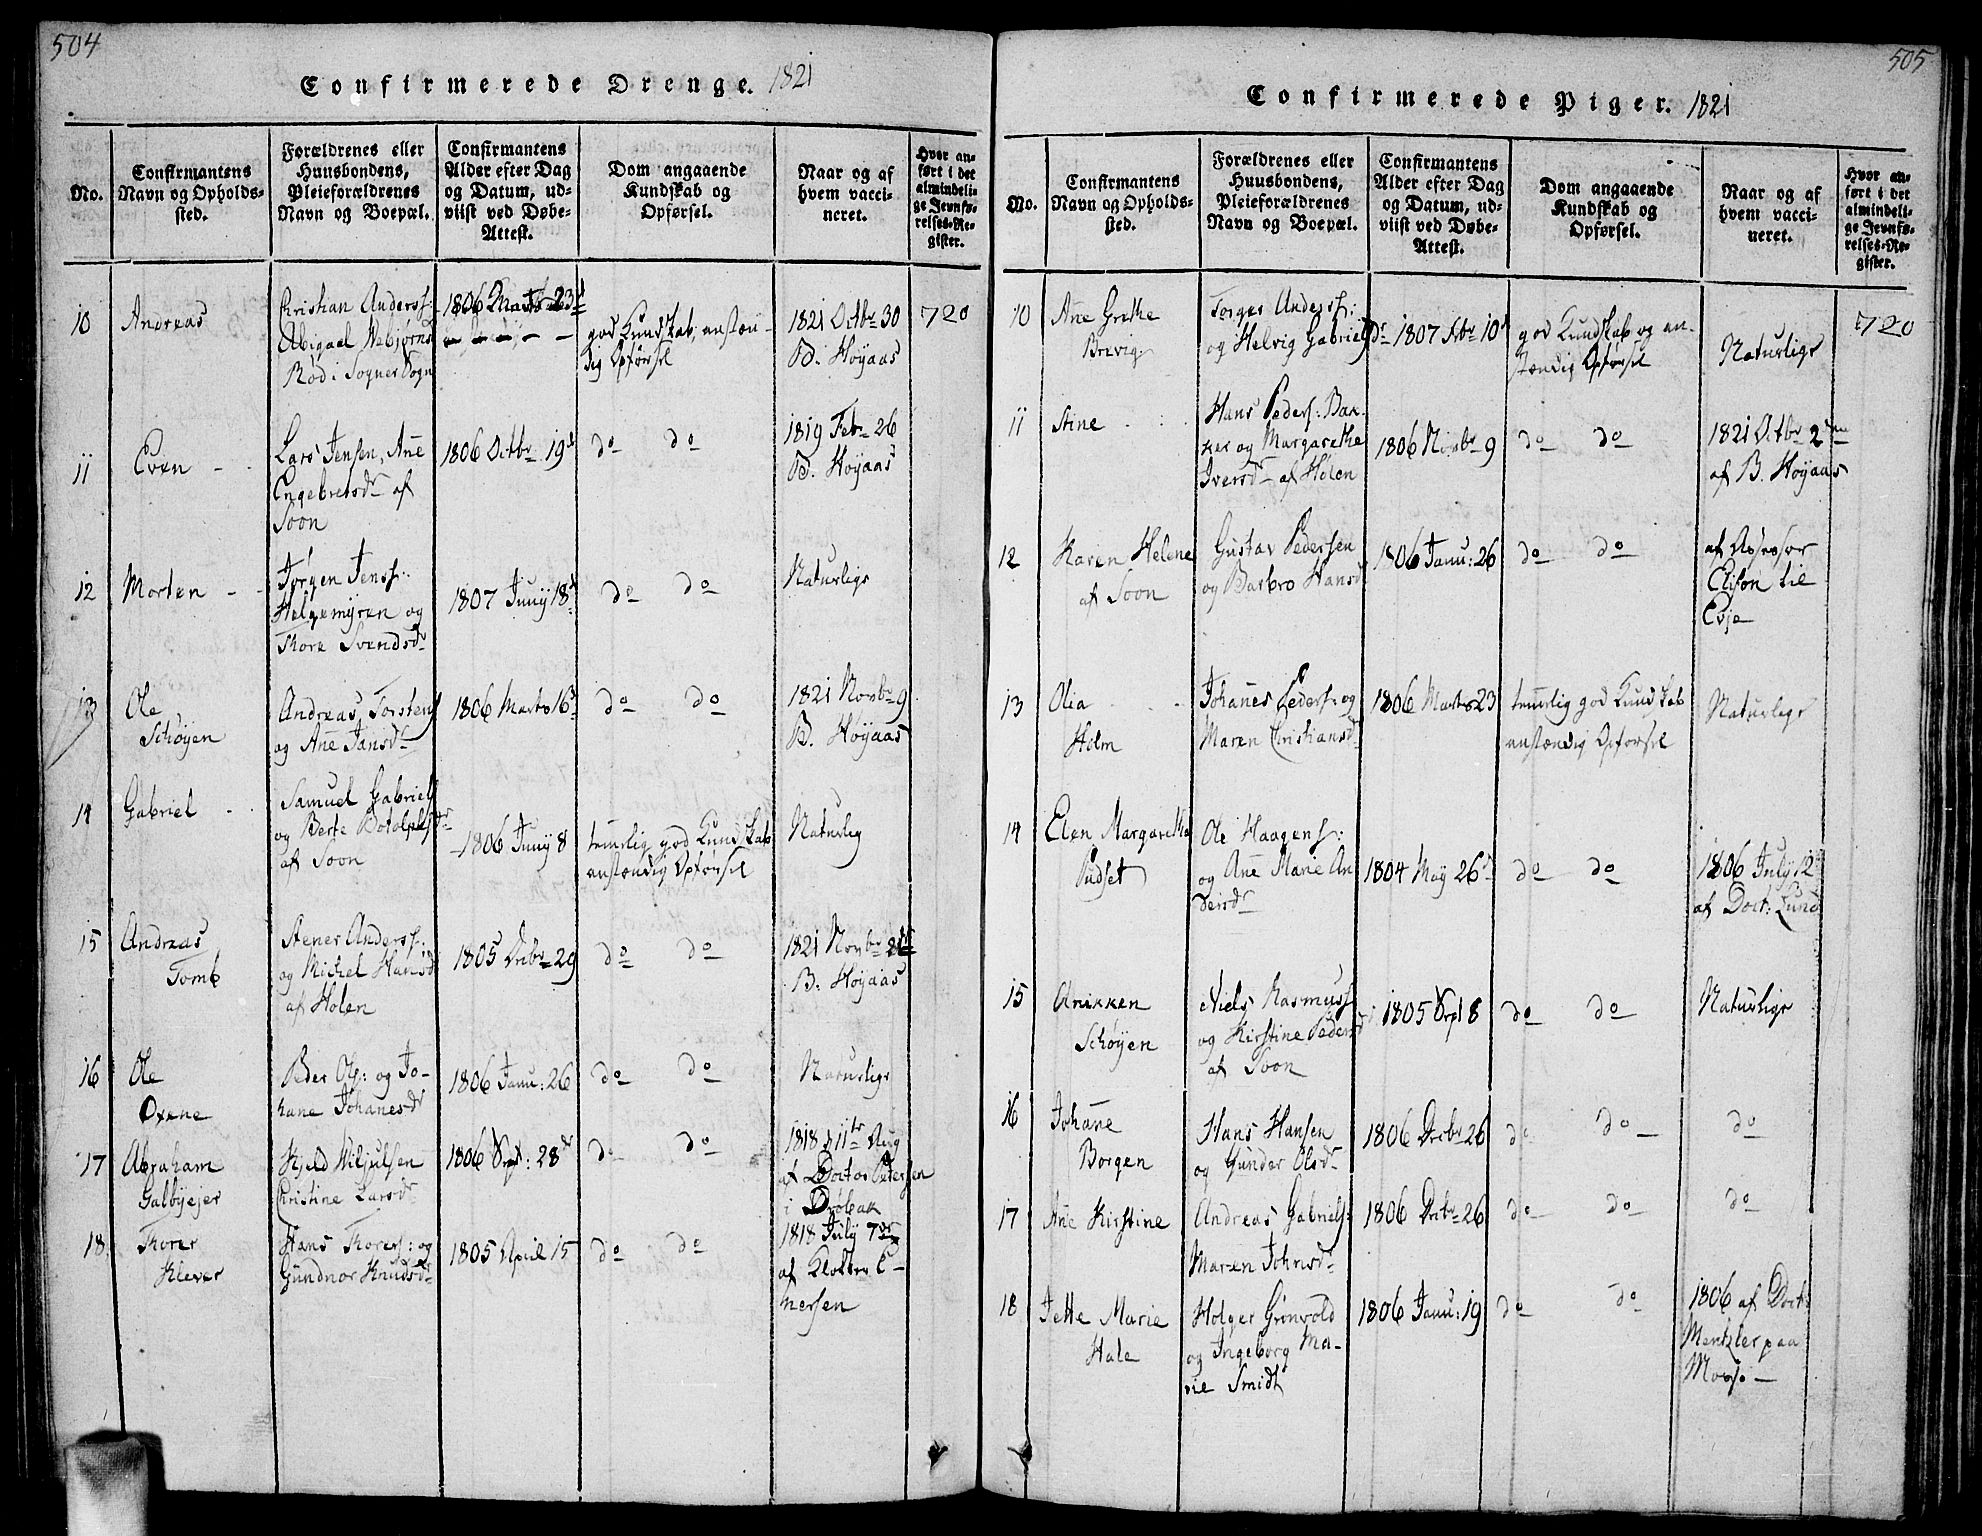 504
Confirmerede Drenge. 1821
No.
Confirmantens
Navn og Opholds-
sted.
Forældrenes eller
Huusbondens,
Pleieforældrenes
Navn og Boepæl.
Confirmantens
Alder efter Dag
og Datum, ud-
viist ved Døbe-
Attest.
Dom angaaende
Kundskab og
Opførsel.
Naar og af
hvem vacci-
neret.
Hvor an-
ført i det
almindeli-
ge Jevnfø-
relses-Re-
gister.
10
Andreas
Christian Anderss:
Abigael Nebjørns
Rød i Sogner Sogn
1806 Marts 23d
god Kundskab, anstæn-
dig Opførsel
1821 Octbr 30
B. Høyaas
720
11
Even - -
Lars Jensen, Ane
Engebretsdr af
Soon
1806 Octbr 19d
do do
1819 Febr 26
B. Høyaas
12
Morten - -
Jørgen Jenss:
Helgemyren og
Thore Svendsdr
1807 Juny 18d
do do
Naturlige
13
Ole
Schøyen
Andreas Torstens
og Ane Jansdr
1806 Marts 16d
do do
1821 Novbr 9
B. Høyaas
14
Gabriel - -
Samuel Gabriels
og Berte Botolphsdr
af Soon
1806 Juny 8
temlig god Kundskab
anstændig Opførsel
Naturlig
15
Andreas
Tomb
Stener Anderss:
og Michel Hansd
af Holen
1805 Decbr 29
do do
1821 Novbr
B. Høyaas
16
Ole
Oxene
Peder Ols: og Jo-
hane Johanesdr
1806 Janu: 26
do do
Naturlige
17
Abraham
Galbyejer
Kjeld Wiljulsen
Christine Larsdr
1806 Sept: 28de
do do
1818 d 11te Aug
af Doctor Petersen
i Drøbak
18
Thorer
Klever
Hans Thorers: og
Gundnor Knudsdr
1805 April 15
do do
1818 July 7de
af Klokker E-
mersen
505
Confirmerede Piger. 1821
No.
Confirmantens
Navn og Opholds-
sted.
Forældrenes eller
Huusbondens,
Pleieforældrenes
Navn og Boepæl.
Confirmantens
Alder efter Dag
og Datum, ud-
viist ved Døbe-
Attest.
Dom angaaende
Kundskab og
Opførsel.
Naar og af
hvem vacci-
neret.
Hvor an-
ført i det
almindeli-
ge Jevnfø-
relses-Re-
gister.
10
Ane Grethe
Brevig
Torger Anderss:
og Helvig Gabrielsdr
1807 Abr 10d
god Kundskab og an-
stændig Opførsel
Naturlige
720
11
Stine - - -
Hans Peders: Bak-
ker og Margarethe
Iversdr af Holen
1806 Novbr 9
do do
1821 Octbr 2den
af B. Høyaas
12
Karen Helene
af Soon
Gustav Pedersen
og Barbro Hansd
1806 Janu: 26
do do
af Assessor
Elison til
Evje
13
Olia - - -
Holm
Johanes Peders: og
Maren Christiansd
1806 Marts 23
temlig god Kundskab
anstændig Opførsel
Naturlige
14
Elen Margarethe
Pudset
Ole Haagens:
og Ane Marie An
dersdr
1804 May 26d
do do
1806 July 12te
af Doct: Lund
15
Anikken
Schøyen
Niels Rasmuss
og Kirstine Pedersd
af Soon
1805 Sept 8
do do
Naturlige
16
Johane
Borgen
Hans Hansen
og Gunder Olsdr
1806 Decbr 26
do do
do
17
Ane Kirstine
Andreas Gabriels:
Maren Johnsdr
1806 Decbr 26
do do
do
18
Jette Marie
Hale
Holger Grønvold
og Ingeborg Ma-
rie Smidt
1806 Janu: 19
do do
1806 af Doct:
Mentzler paa
Moss. -